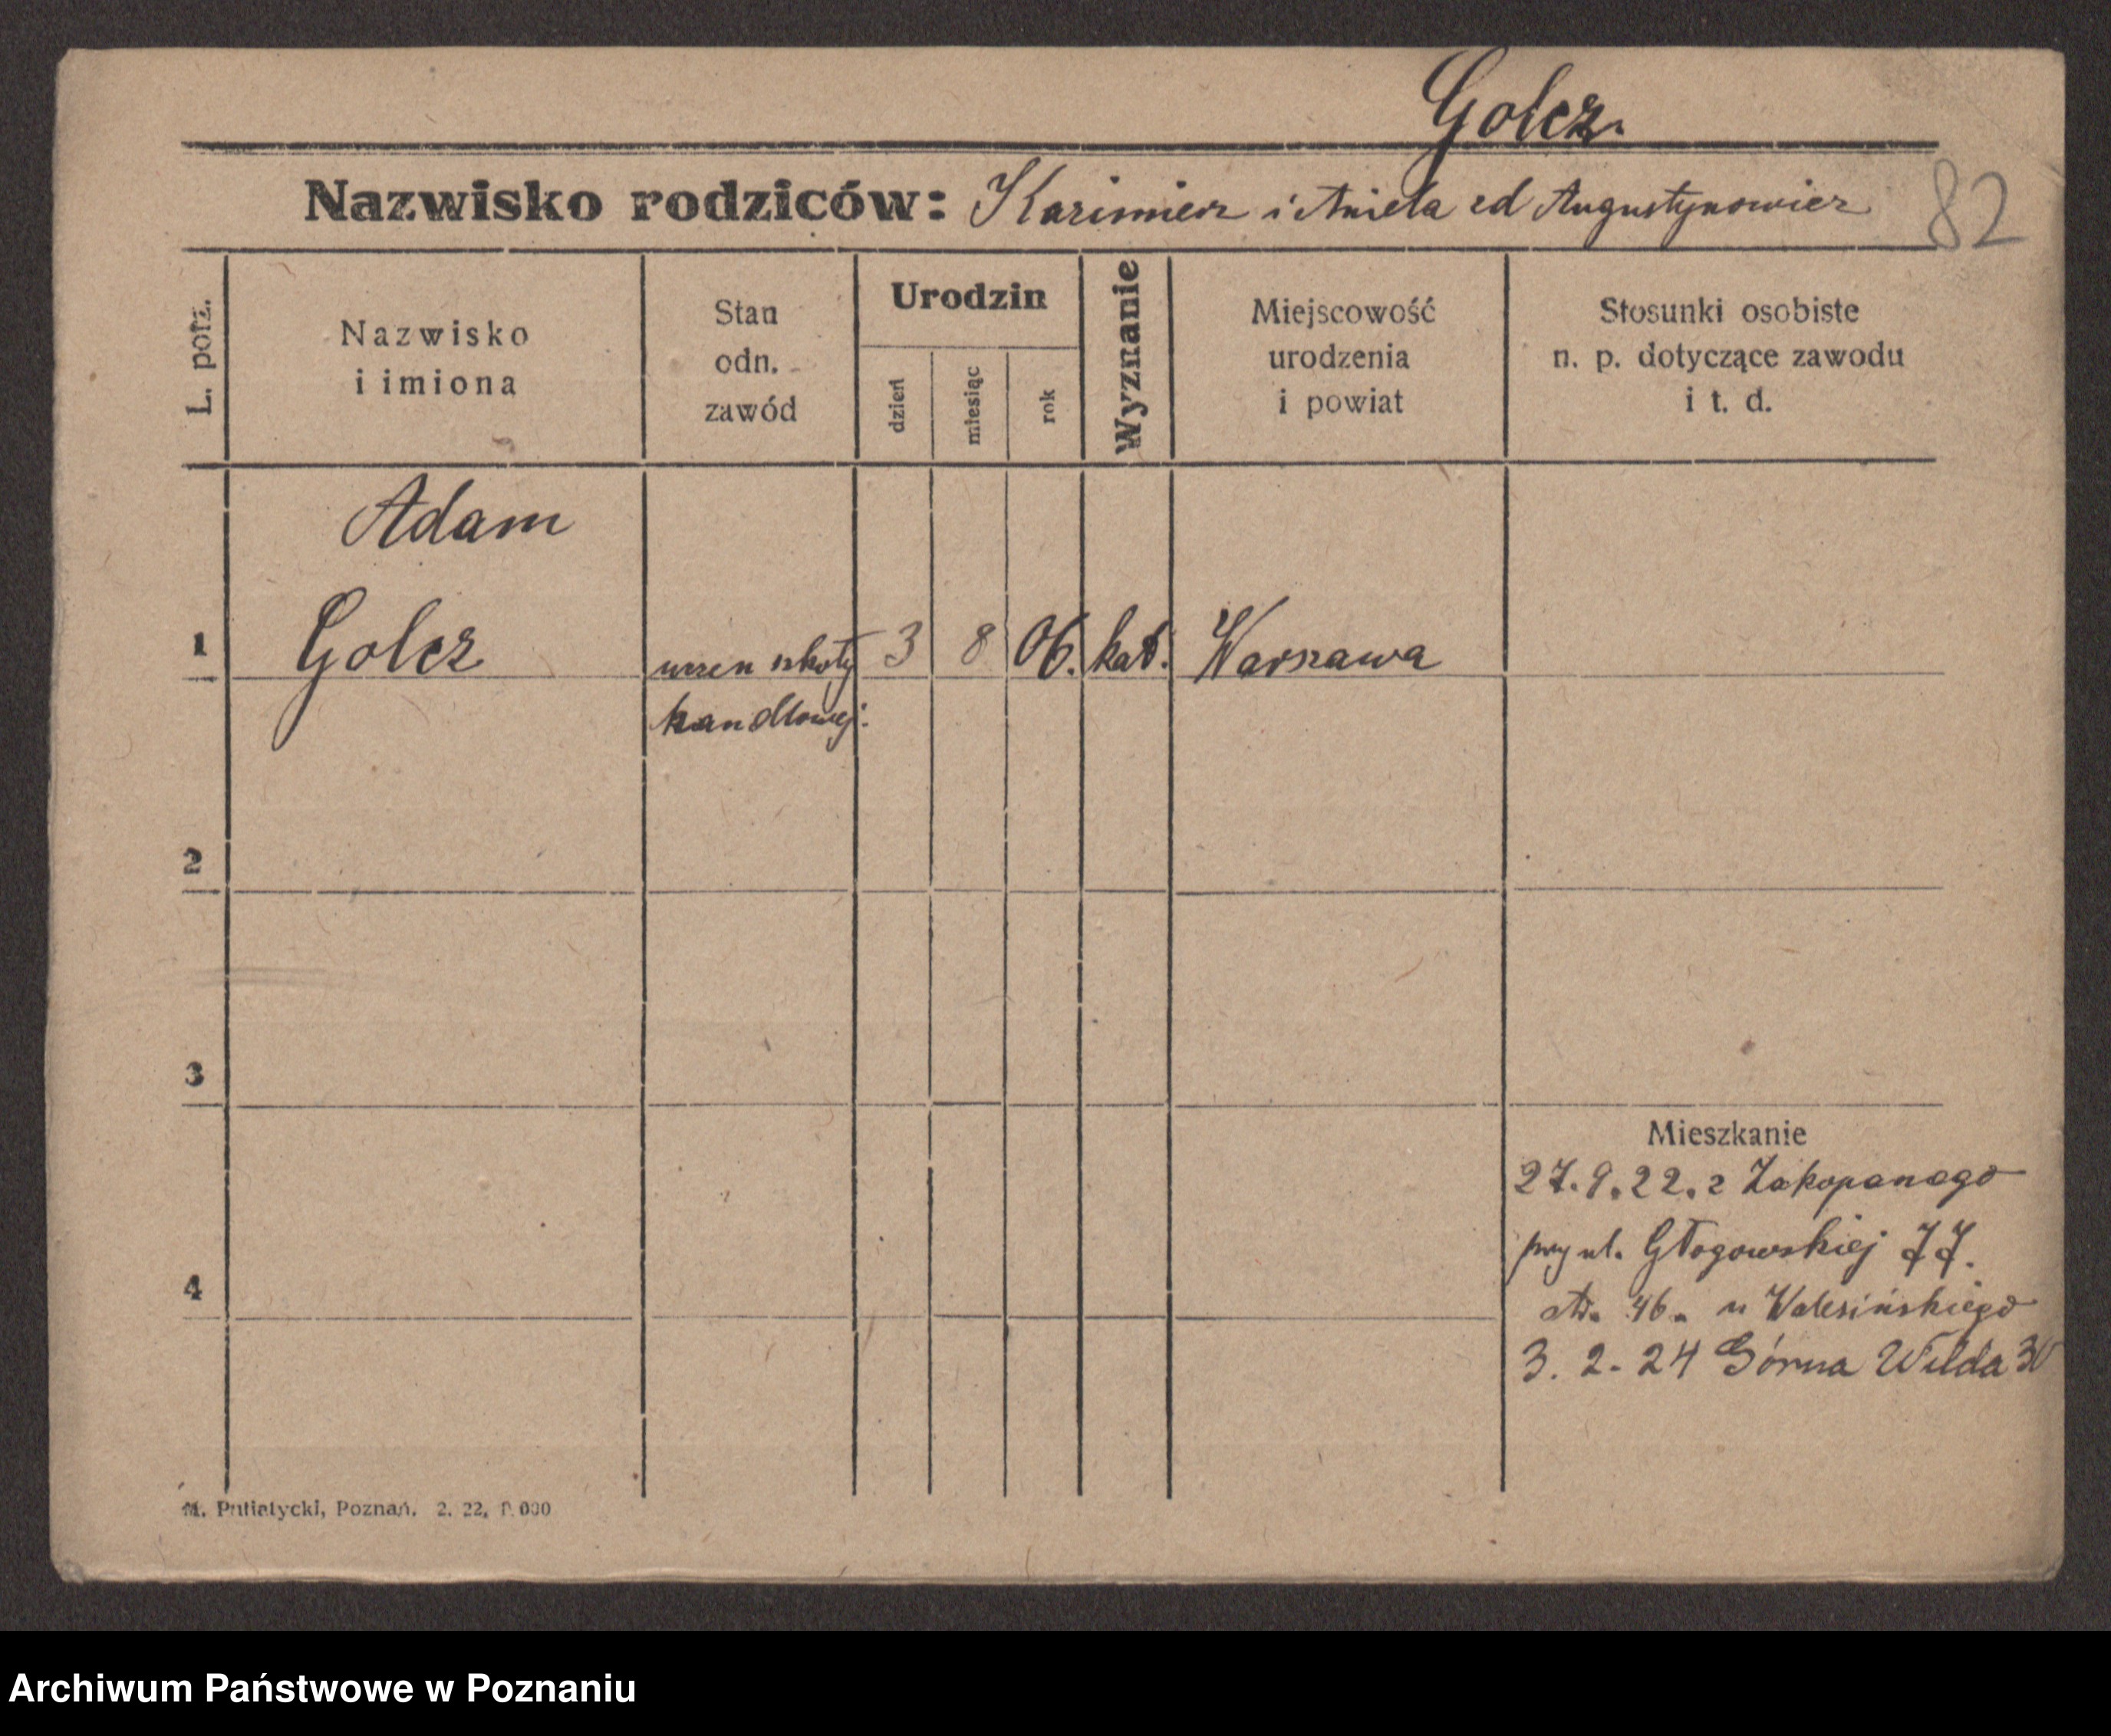 Golcz.
Nazwisko rodziców: Kazimierz i Aniela zd Augustynowicz
82
L. porz.
Nazwisko
i imiona
Stan
odn.
zawód
Urodzin
dzień
miesiąc
rok
Wyznanie
Miejscowość
urodzenia
i powiat
Stosunki osobiste
n. p. dotyczące zawodu
i t. d.
Adam
1 Golcz uczen szkoły 3 8 06. kat. Warszawa
handlowej.
2
3
Mieszkanie
27.9.22. z Zakopanego
przy ul. Głogowskiej 77.
4
46. u
3. 2. 24 Górna Wilda 30
M. Putiatycki, Poznań. 2. 22, 000
Archiwum Państwowe w Poznaniu